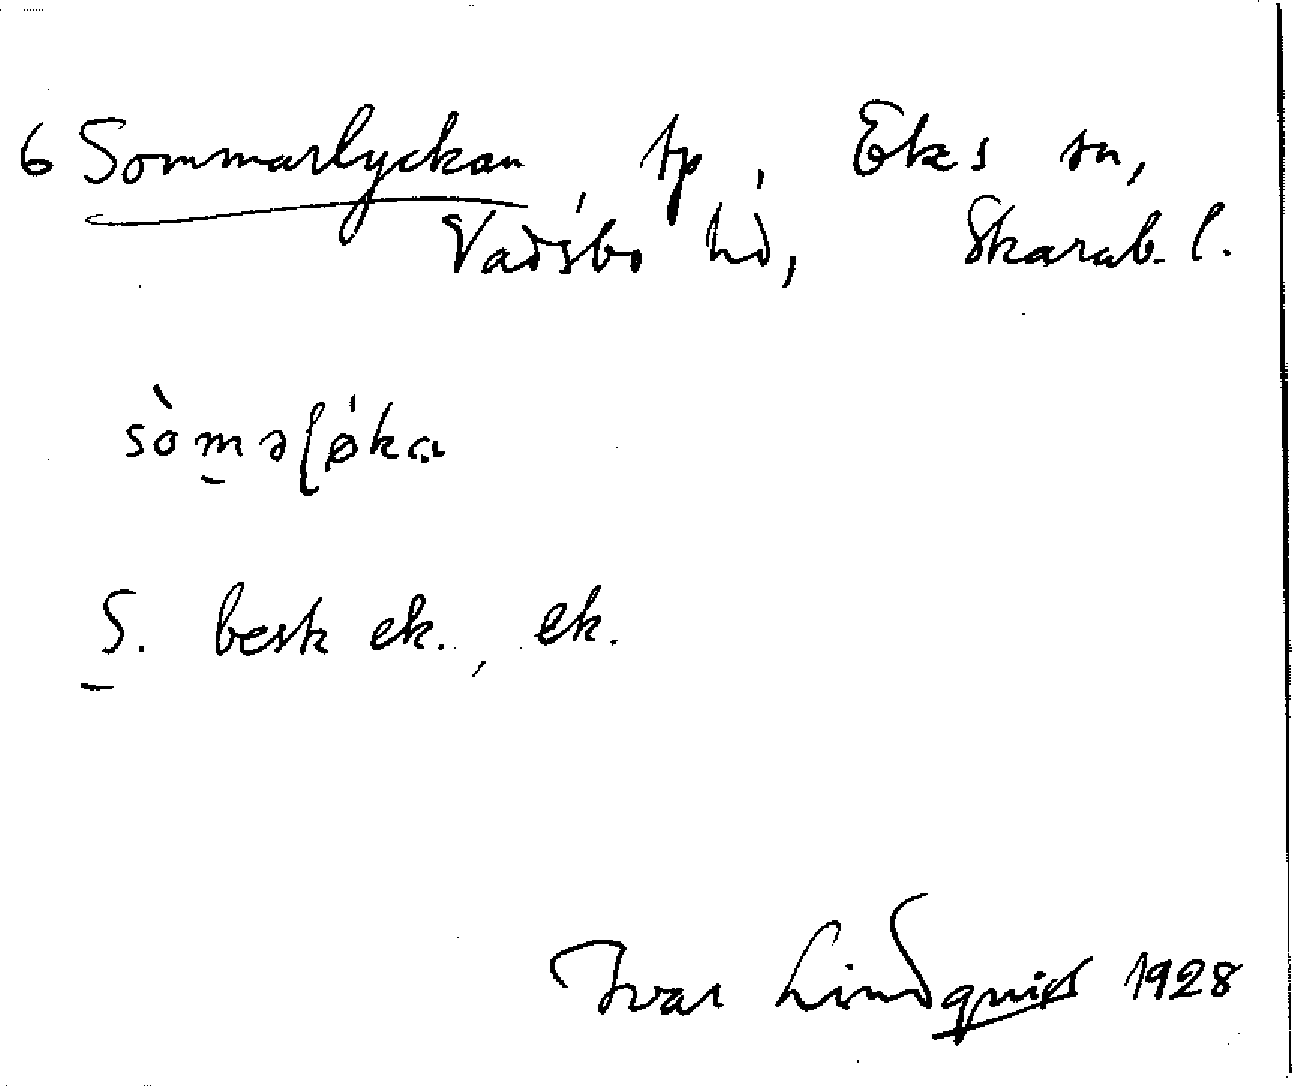 6 Sommarlyckan tp, Eks sn,
Vadsbo hd, Skarab. l.
sòməɭǿka
S. besk ek., ek.
Ivar Lindquist 1928